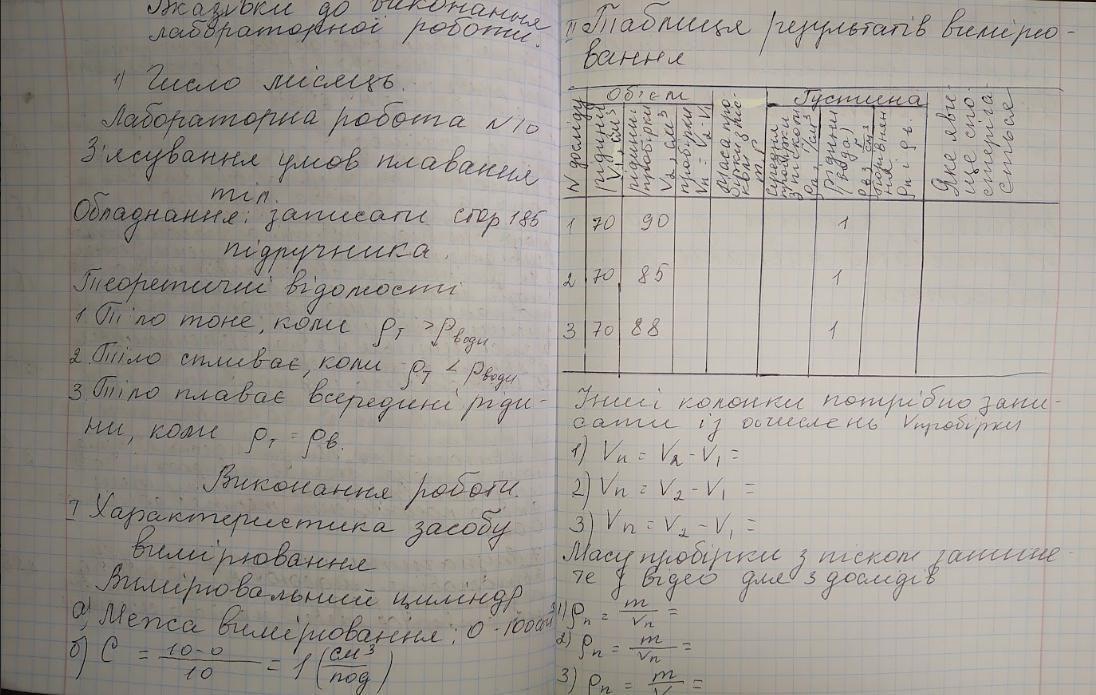 Вказівки до виконання
лабораторної роботи.
1) Число місяць.
Лабораторна робота №10
З'ясування умов плавання
тіл.
Обладнання: записати стор 185
підручника.
Теоретичні відомості
1. Тіло тоне, коли ρт > ρводи.
2. Тіло спливає, коли ρт < ρводи
3. Тіло плаває всередині ріди-
ни, коли ρт = ρв.
Виконання роботи.
I Характеристика засобу
вимірювання
Вимірювальний циліндр
а) Межа вимірювання: 0-100см³
б) С = 10-0 / 10 = 1 (см³/под)
II Таблиця результатів вимірю-
вання
N досліду
Об'єм
рідини V₁, см³
рідини і пробірки V₂, см³
пробірки Vп = V₂-V₁
маса про-
Густина
рідини (вода)
ρп і ρв.
Яке яви-
ще спо-
стеріга-
ється
1 70 90 1
2 70 85 1
3 70 88 1
Інші колонки потрібно запи-
сати із обчислень Vпробірки
1) Vп = V₂ - V₁ =
2) Vп = V₂ - V₁ =
3) Vп = V₂ - V₁ =
Масу пробірки з піском запише-
те з відео для 3 дослідів
1) ρп = m/Vп =
2) ρп = m/Vп =
3) ρп = m/V =